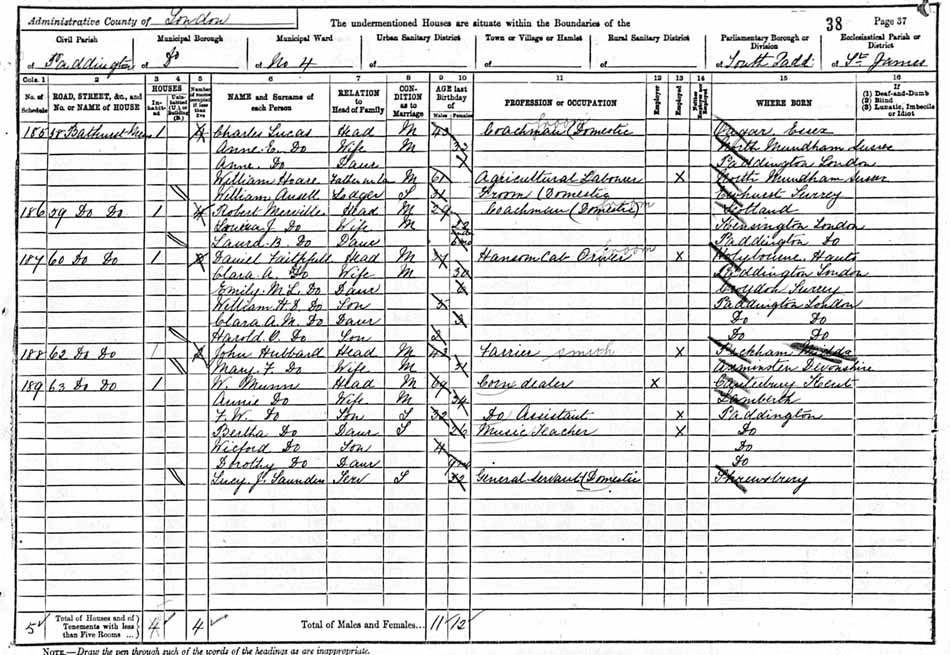 Administrative County of London
The undermentioned Houses are situate within the Boundaries of the
38 Page 37
Civil Parish of Paddington
Municipal Borough of Do
Municipal Ward of No 4
Urban Sanitary District of
Town or Village or Hamlet of
Rural Sanitary District of
Parliamentary Borough or Division of South Padd.
Ecclesiastical Parish or District of St James
Cols. 1 2 3 4 5 6 7 8 9 10 11 12 13 14 15 16
No. of Schedule
ROAD, STREET, &c., and No. or NAME of HOUSE
HOUSES
Inhabited
Uninhabited (U.) or Building (B.)
Number of rooms occupied if less than five
NAME and Surname of each Person
RELATION to Head of Family
CONDITION as to Marriage
AGE last Birthday of
Males Females
PROFESSION or OCCUPATION
Employer
Employed
Neither
WHERE BORN
If (1) Deaf-and-Dumb (2) Blind (3) Lunatic, Imbecile or Idiot
185 58 Bathurst Mews 1 4 Charles Lucas Head M 43 Coachman (Domestic) Ongar Essex
Anne E. Do Wife M 32 North Mundham Sussex
Anne Do Daur Paddington London
William Hoare Father in La M 61 Agricultural Labourer X North Mundham Sussex
William Ansell Lodger S 31 Groom (Domestic Surrey
186 59 Do Do 1 4 Robert Merville Head M 29 Coachman (Domestic)
Louisa J. Do Wife M Kensington London
Laura B. Do Daur Paddington Do
187 60 Do Do 1 Daniel Faithfull Head M Hansom Cab Driver X Holybourne, Hants
Clara A. Do Wife M 30 Paddington London
Emily M. L. Do Daur 6 Croydon Surrey
William H. D. Do Son Paddington London
Clara A. M. Do Daur 3 Do Do
Harold O. Do Son 2 Do Do
188 62 Do Do 1 John Hubbard Head M 43 Farrier smith X
Mary F. Do Wife M Axminster Devonshire
189 63 Do Do 1 W. Munn Head M 69 Corn dealer X Canterbury Kent
Annie Do Wife M 34 Lambeth
F. W. Do Son S 32 Do Assistant X Paddington
Bertha Do Daur S 26 Music Teacher X Do
Wicford Do Son 4 Do
Dorothy Do Daur Do
Lucy J. Saunders Serv S 22 General Servant (Domestic Shrewsbury
5 Total of Houses and of Tenements with less than Five Rooms ... 4 4 Total of Males and Females... 11 12
NOTE.—Draw the pen through such of the words of the headings as are inappropriate.